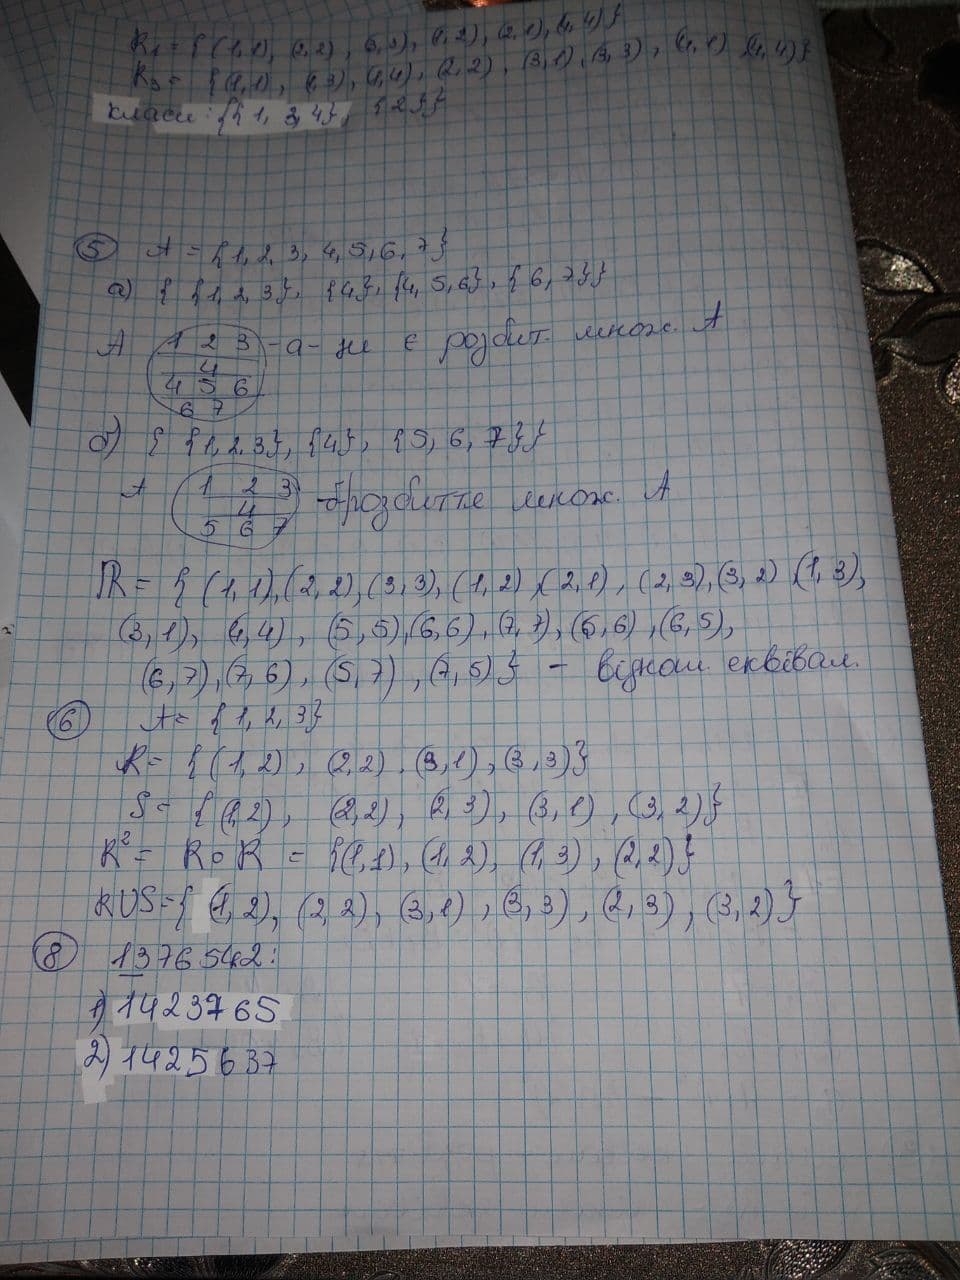 R₁ = { (1,1), (2,2), (3,3), (1,2), (2,1), (4,4) }
R₃ = { (1,1), (1,3), (1,4), (2,2), (3,1), (3,3), (4,1) (4,4) }
класи: {{1, 3, 4}, {2}}
⑤ A = {1, 2, 3, 4, 5, 6, 7}
а) { {1, 2, 3}, {4}, {4, 5, 6}, {6, 7}}
A 1 2 3 -а- не є розбит. множ. A
4
4 5 6
6 7
б) { {1, 2, 3}, {4}, {5, 6, 7}}
A 1 2 3 -б розбиття множ. A
4
5 6 7
R = { (1,1), (2,2), (3,3), (1,2), (2,1), (2,3), (3,2) (1,3),
(3,1), (4,4), (5,5), (6,6), (7,7), (5,6), (6,5),
(6,7), (7,6), (5,7), (7,5) } - віднош. еквівал.
⑥ A = {1, 2, 3}
R = { (1,2), (2,2), (3,1), (3,3)}
S = { (1,2), (2,2), (2,3), (3,1), (3,2)}
R² = R ∘ R = {(1,1), (1,2), (1,3), (2,2)}
R∪S = { (1,2), (2,2), (3,1), (3,3), (2,3), (3,2)}
⑧ 1376542:
1) 1423765
2) 1425637